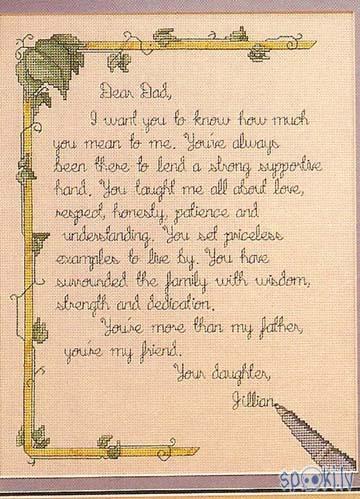 Dear Dad,
I want you to know how much
you mean to me. You've always
been there to lend a strong supportive
hand. You taught me all about love,
respect, honesty, patience and
understanding. You set priceless
examples to live by. You have
surrounded the family with wisdom,
strength and dedication.
You're more than my father,
you're my friend.
Your daughter,
Jillian
spoki.lv